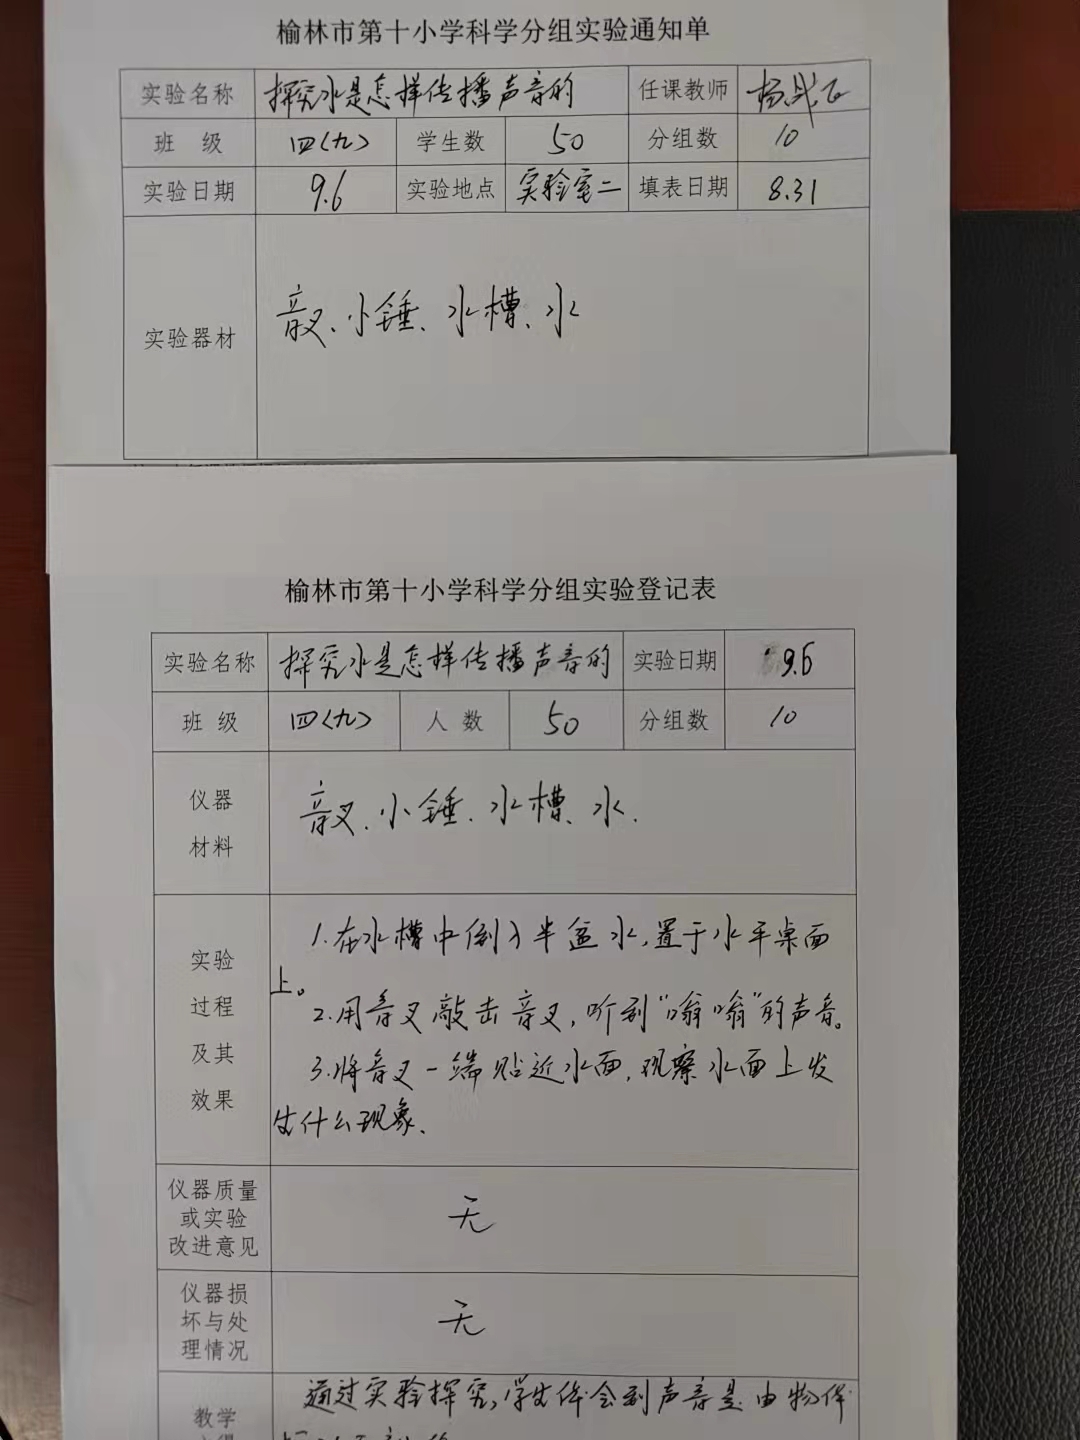 榆林市第十小学科学分组实验通知单
实验名称 探究水是怎样传播声音的 任课教师
班 级 四(九) 学生数 50 分组数 10
实验日期 9.6 实验地点 实验室二 填表日期 8.31
实验器材 音叉、小锤、水槽、水
榆林市第十小学科学分组实验登记表
实验名称 探究水是怎样传播声音的 实验日期 9.6
班 级 四(九) 人 数 50 分组数 10
仪器
材料
音叉、小锤、水槽、水.
实验
过程
及其
效果
1.在水槽中倒入半盆水,置于水平桌面
上。
2.用音叉敲击音叉,听到"嗡嗡"的声音。
3.将音叉一端贴近水面,观察水面上发
生什么现象.
仪器质量
或实验
改进意见
无
仪器损
坏与处
理情况
无
教学
通过实验探究,学生体会到声音是由物体